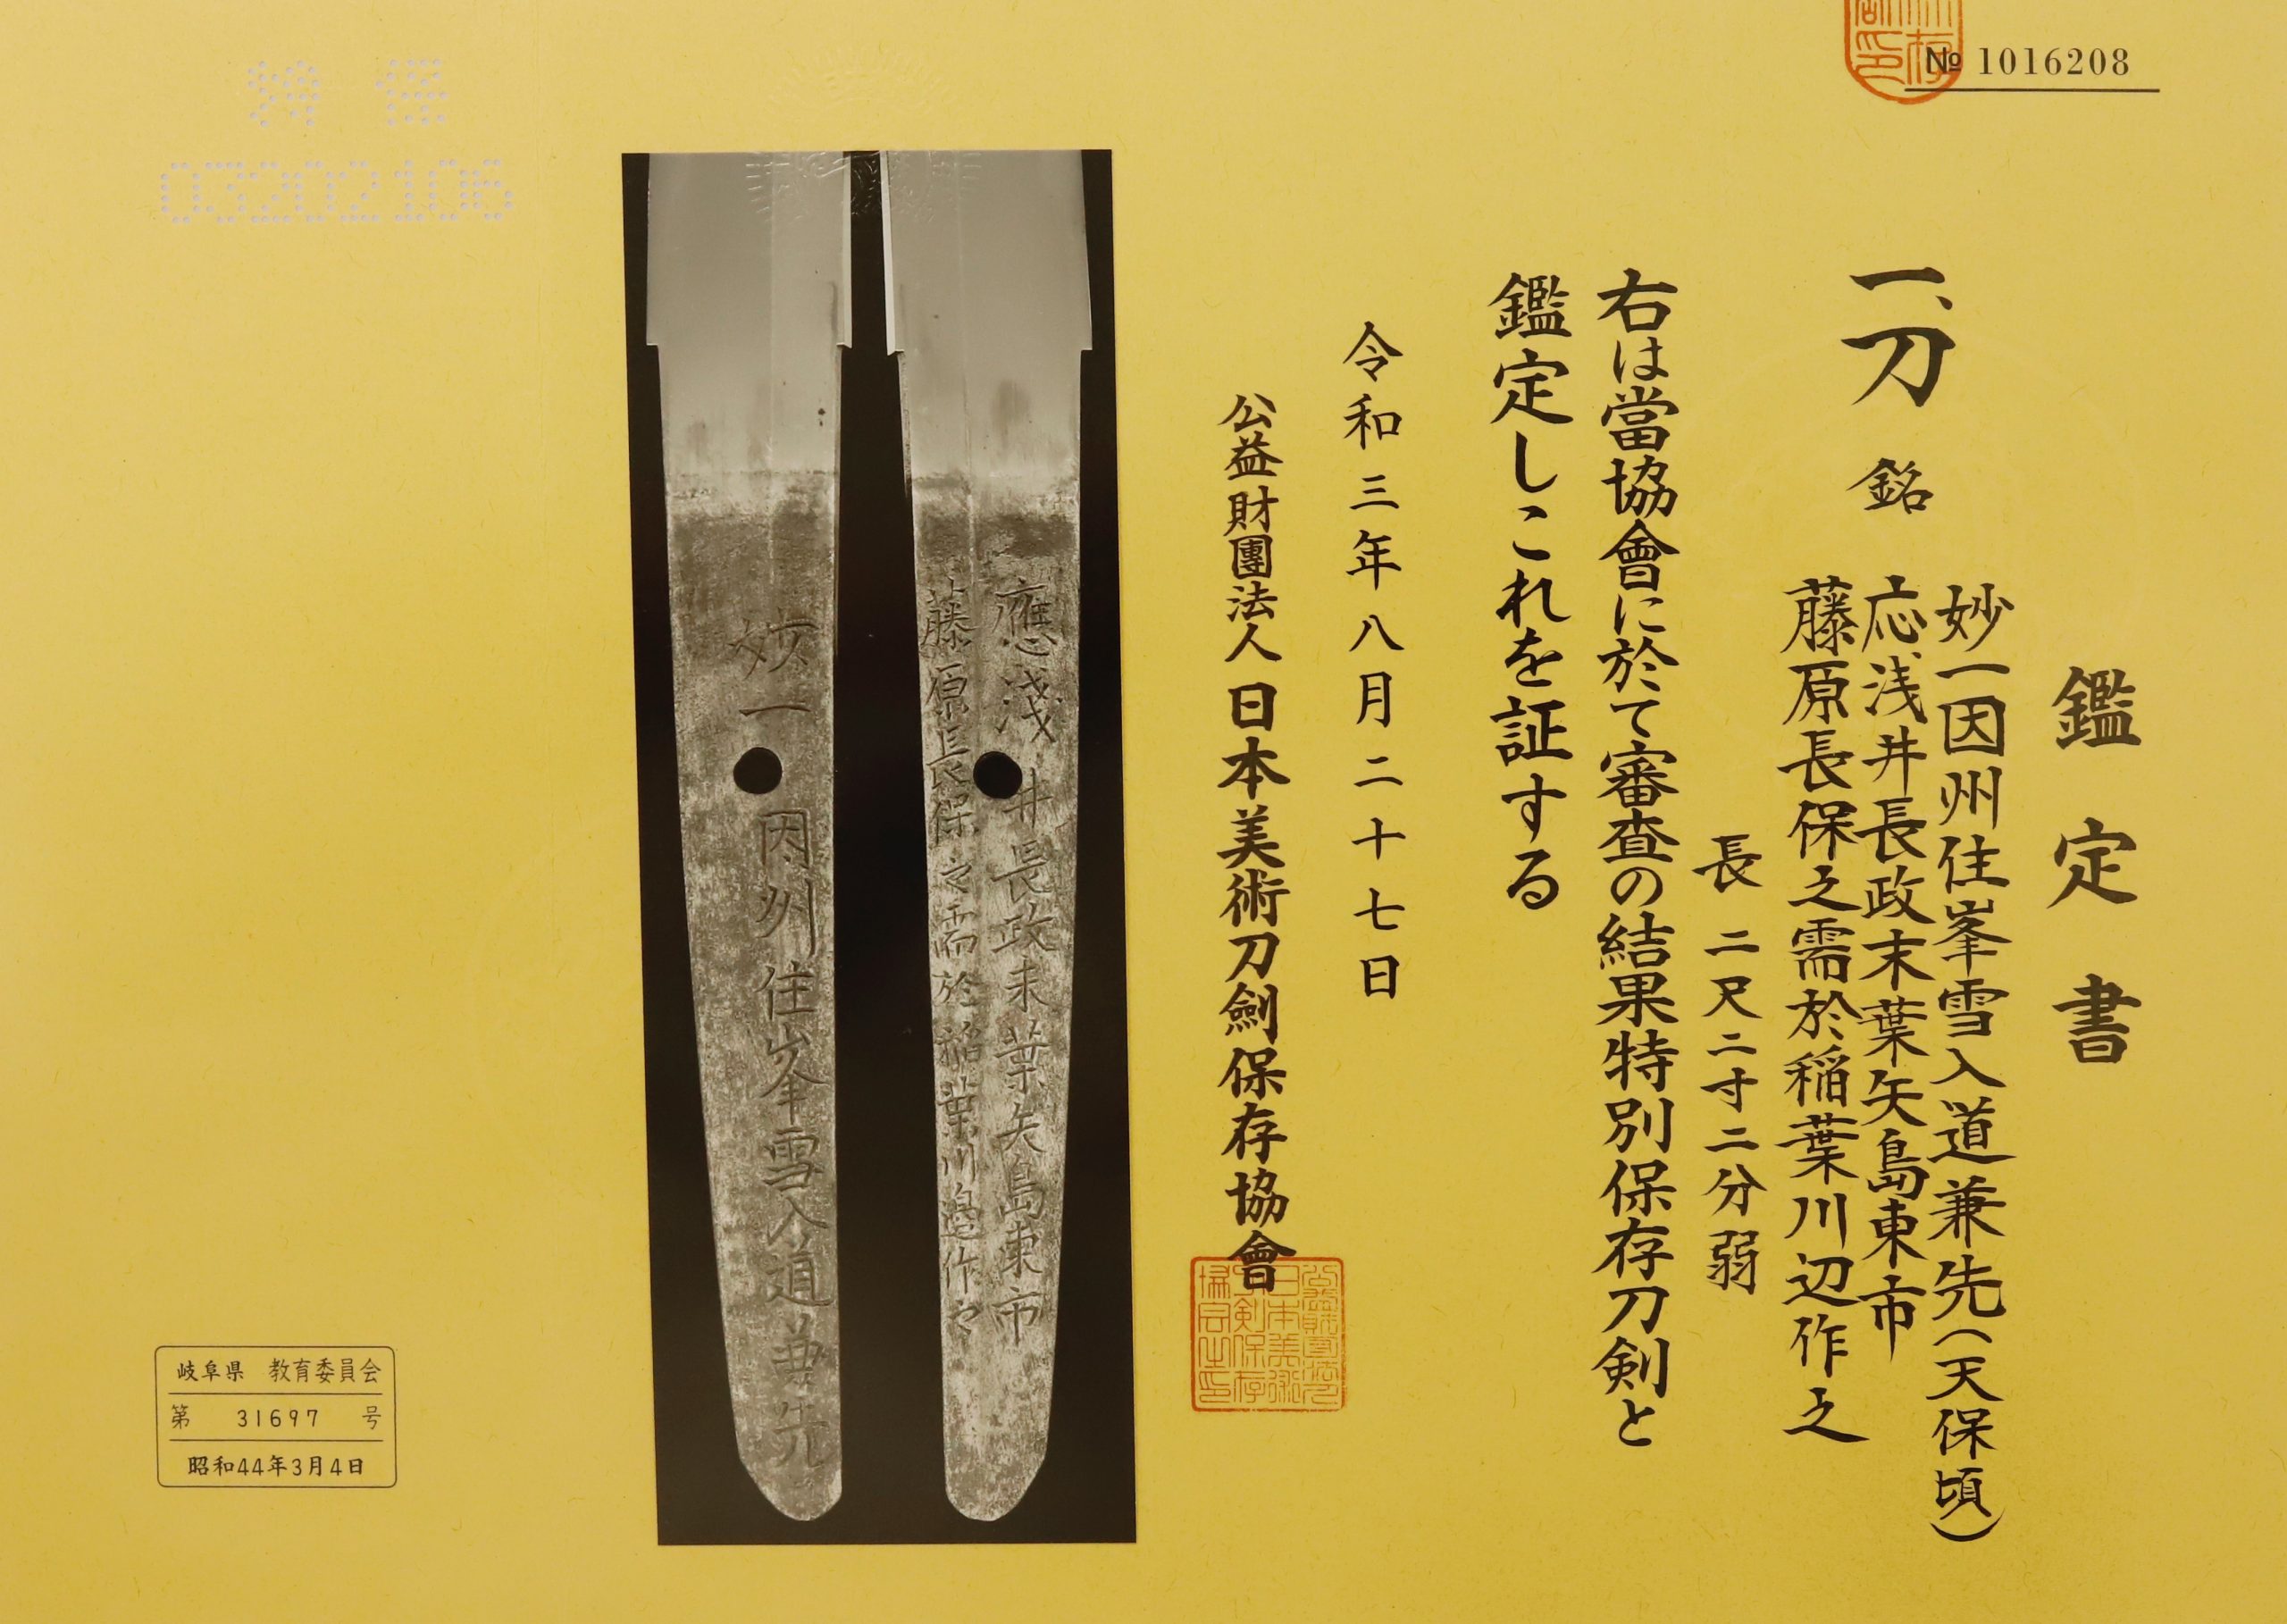 № 1016208
鑑定書
一、刀 銘
妙一因州住峯雪入道兼先(天保頃)
応浅井長政末葉矢島東市
藤原長保之需於稲葉川辺作之
長 二尺二寸二分弱
右は當協會に於て審査の結果特別保存刀剣と
鑑定しこれを証する
令和三年八月二十七日
公益財團法人 日本美術刀劍保存協會
應淺井長政末葉矢島東市
藤原長保之需於稲葉川邉作之
妙一因州住峯雪入道兼先
特保
03202106
岐阜県 教育委員会
第 31697 号
昭和44年3月4日